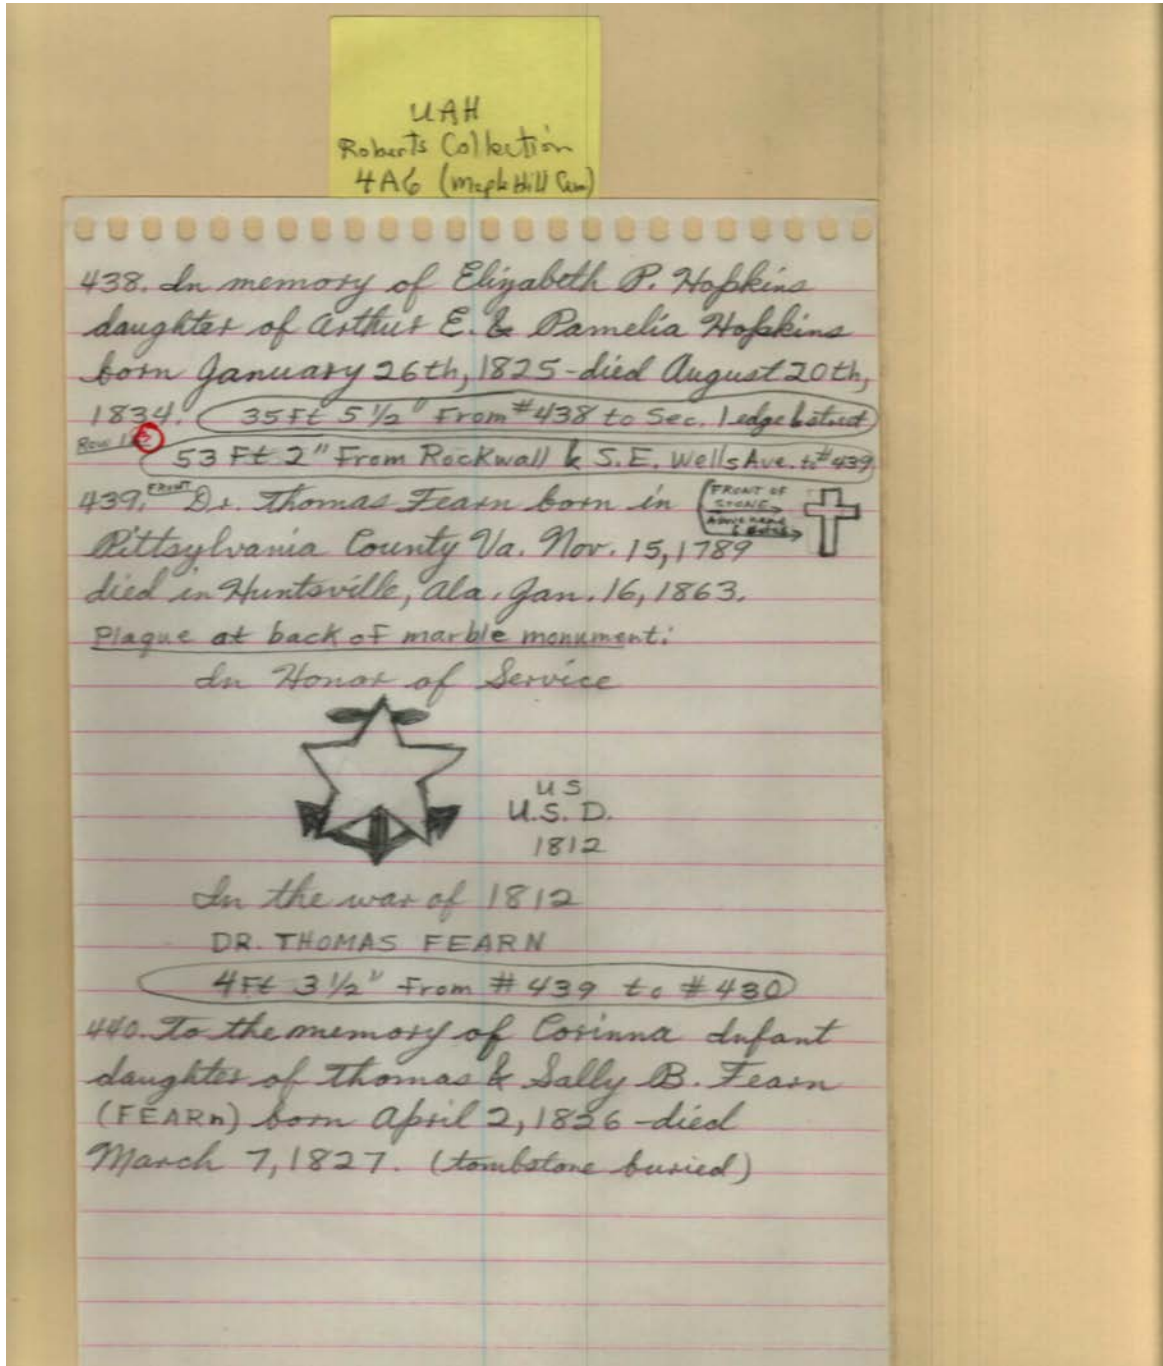 UAH
Roberts Collection
4A6 (Maple Hill Cem)
438. In memory of Elizabeth P. Hopkins
daughter of Arthur E. & Pamelia Hopkins
born January 26th, 1825 - died August 20th,
1834. 35 Ft 5 1/2" From #438 to Sec. 1 edge & street
Row
53 Ft 2" From Rockwall & S.E. Wells Ave. to #439
439. FRONT Dr. Thomas Fearn born in
FRONT OF
STONE
Above name
& dates
Pittsylvania County Va. Nov. 15, 1789
died in Huntsville, Ala. Jan. 16, 1863.
Plaque at back of marble monument:
In Honor of Service
US
U.S. D.
1812
In the war of 1812
DR. THOMAS FEARN
4 Ft 3 1/2" From #439 to #430
440. To the memory of Corinna Infant
daughter of Thomas & Sally B. Fearn
(FEARn) born April 2, 1826 - died
March 7, 1827. (tombstone buried)